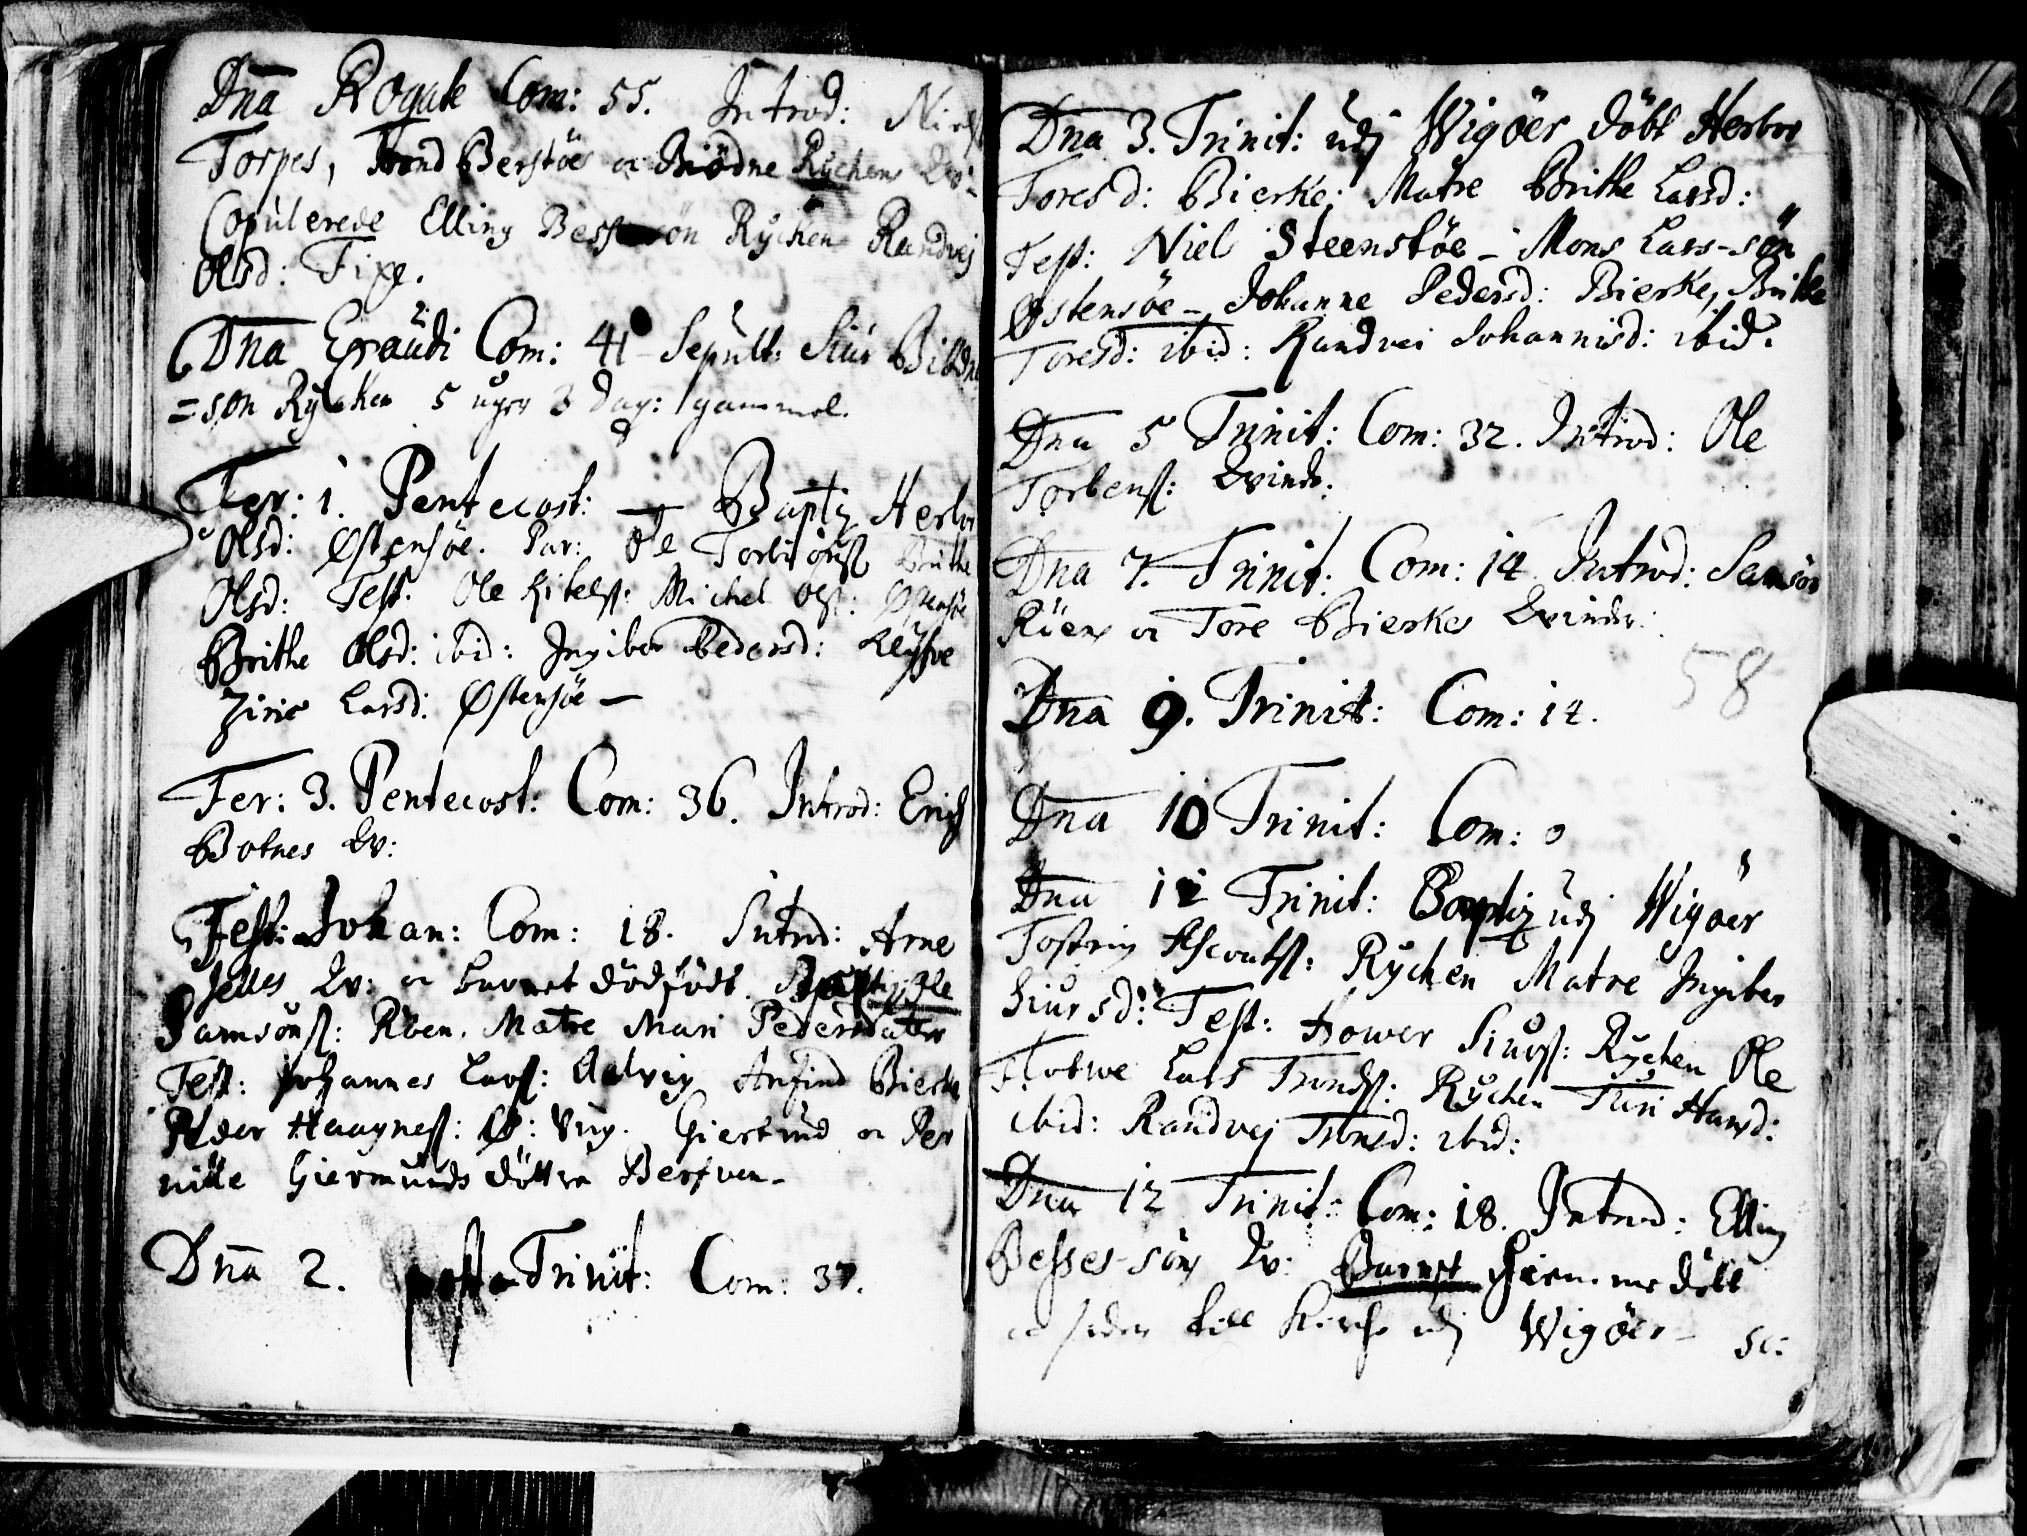 Dna Rogate Com: 55. Introd: Niels
Torpes, Trond Berstöe oc Biödne Rychens Qv:
Copulerede Elling Bessesön Rychen Randvej
Olsd: Fixe.
Dna Exaudi Com: 41 Sepult: Siur Biödne
=sön Rycken 5 uger 3 dag: gammel.
Fer: 1. Pentecost: — Baptiz Herbor
Olsd: Østensöe. Par: Ole Torbiörnss Brithe
Olsd: Test: Ole Kitelss: Michel Olss: Østensöe
Brithe Olsd: ibid: Ingibor Pedersd:
Zirie Larsd: Østensöe —
Fer: 3. Pentecost: Com: 36. Introd: Erich
Botnes Qv:
Fest: Johan: Com: 18. Introd: Arne
Qv: oc barnet dödfödt. Baptiz Ole
Samsönss: Röen. Matre Mari Pedersdatter
Test: Johannes Larss: Aalvig Arfind Bierke
Peder Haagness: Vng. Giertrud oc Per
nille Giermunds döttre Berfven-
Dna 2. post Trinit: Com: 37.
Dna 3. Trinit: udj Wigöer döbt Herbor
Toresd: Bierke; Matre Brithe Larsd:
Test: Niels Steenstöe - Mons Lars-sön
Østensöe - Johanne Pedersd: Bierke, Brithe
Toresd: ibid: Randvei Johannisd: ibid.
Dna 5 Trinit: Com: 32. Introd: Ole
Torbenss: Qvinde.
Dna 7. Trinit: Com: 14. Introd: Samsön
Röens oc Tore Bierkes Qvinder:
58
Dna 9. Trinit: Com: 14.
Dna 10 Trinit: Com: 0
Dna 11 Trinit: Baptiz udj Wigöer
Tostein Rychen Matre Ingibor
Siursd: Test: Hower Siurss: Rychen Ole
Flotwe Lars Trondss: Rychen Turi Hansd:
ibid: Randvej Tronsd: ibid:
Dna 12 Trinit: Com: 18. Introd: Elling
Besses-söns Qv: Barnet hiemme döbt
oc siden till Kirche udj Wigöer - sc: